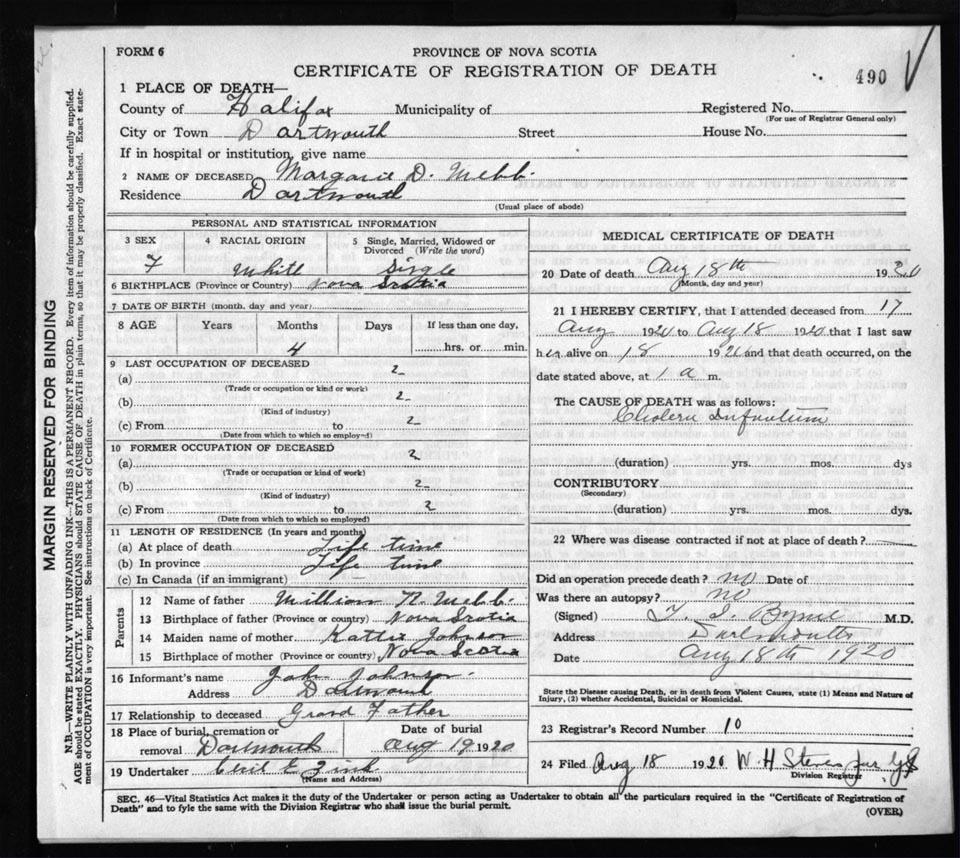 FORM 6
PROVINCE OF NOVA SCOTIA
CERTIFICATE OF REGISTRATION OF DEATH
490
1 PLACE OF DEATH—
County of Halifax Municipality of Registered No.
(For use of Registrar General only)
City or Town Dartmouth Street House No.
If in hospital or institution, give name
2 NAME OF DECEASED Margarie D. Webb.
Residence Dartmouth
(Usual place of abode)
PERSONAL AND STATISTICAL INFORMATION
3 SEX 4 RACIAL ORIGIN 5 Single, Married, Widowed or Divorced (Write the word)
F White Single
6 BIRTHPLACE (Province or Country) Nova Scotia
7 DATE OF BIRTH (month, day and year)
8 AGE Years Months Days If less than one day,
4 hrs. or min.
9 LAST OCCUPATION OF DECEASED
(a)
(Trade or occupation or kind or work)
(b)
(Kind of industry)
(c) From to
(Date from which to which so employed)
10 FORMER OCCUPATION OF DECEASED
(a)
(Trade or occupation or kind of work)
(b)
(Kind of industry)
(c) From to
(Date from which to which so employed)
11 LENGTH OF RESIDENCE (In years and months)
(a) At place of death Life time
(b) In province Life time
(c) In Canada (if an immigrant)
Parents
12 Name of father William N. Webb.
13 Birthplace of father (Province or country) Nova Scotia
14 Maiden name of mother Kattie Johnson
15 Birthplace of mother (Province or country) Nova Scotia
16 Informant's name John Johnson.
Address Dartmouth
17 Relationship to deceased Grand Father
18 Place of burial, cremation or removal Dartmouth
Date of burial Aug 19 1920
19 Undertaker Cecil E Zink
(Name and Address)
MEDICAL CERTIFICATE OF DEATH
20 Date of death Aug 18th 1920
(Month, day and year)
21 I HEREBY CERTIFY, that I attended deceased from 17
Aug 1920 to Aug 18 1920 that I last saw
her alive on 18 1920 and that death occurred, on the
date stated above, at 1 a m.
The CAUSE OF DEATH was as follows:
Cholera Infantum
(duration) yrs. mos. dys
CONTRIBUTORY
(Secondary)
(duration) yrs. mos. dys.
22 Where was disease contracted if not at place of death?
Did an operation precede death? no Date of
Was there an autopsy? no
(Signed) Byrne M.D.
Address Dartmouth
Date Aug 18th 1920
State the Disease causing Death, or in death from Violent Causes, state (1) Means and Nature of
Injury, (2) whether Accidental, Suicidal or Homicidal.
23 Registrar's Record Number 10
24 Filed Aug 18 1920 W. H Stevens
Division Registrar
SEC. 46—Vital Statistics Act makes it the duty of the Undertaker or person acting as Undertaker to obtain all the particulars required in the "Certificate of Registration of
Death" and to fyle the same with the Division Registrar who shall issue the burial permit.
(OVER)
MARGIN RESERVED FOR BINDING
N.B.—WRITE PLAINLY WITH UNFADING INK—THIS IS A PERMANENT RECORD. Every item of information should be carefully supplied.
AGE should be stated EXACTLY. PHYSICIANS should STATE CAUSE OF DEATH in plain terms, so that it may be properly classified. Exact statement of OCCUPATION is very important. See instructions on back of Certificate.